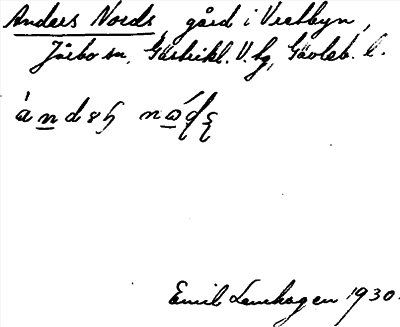 Anders Nords, gård i Vestbyn,
Järbo sn, Gästrikl. V. hg, Gävleb. l.
Emil Lenhagen 1930.